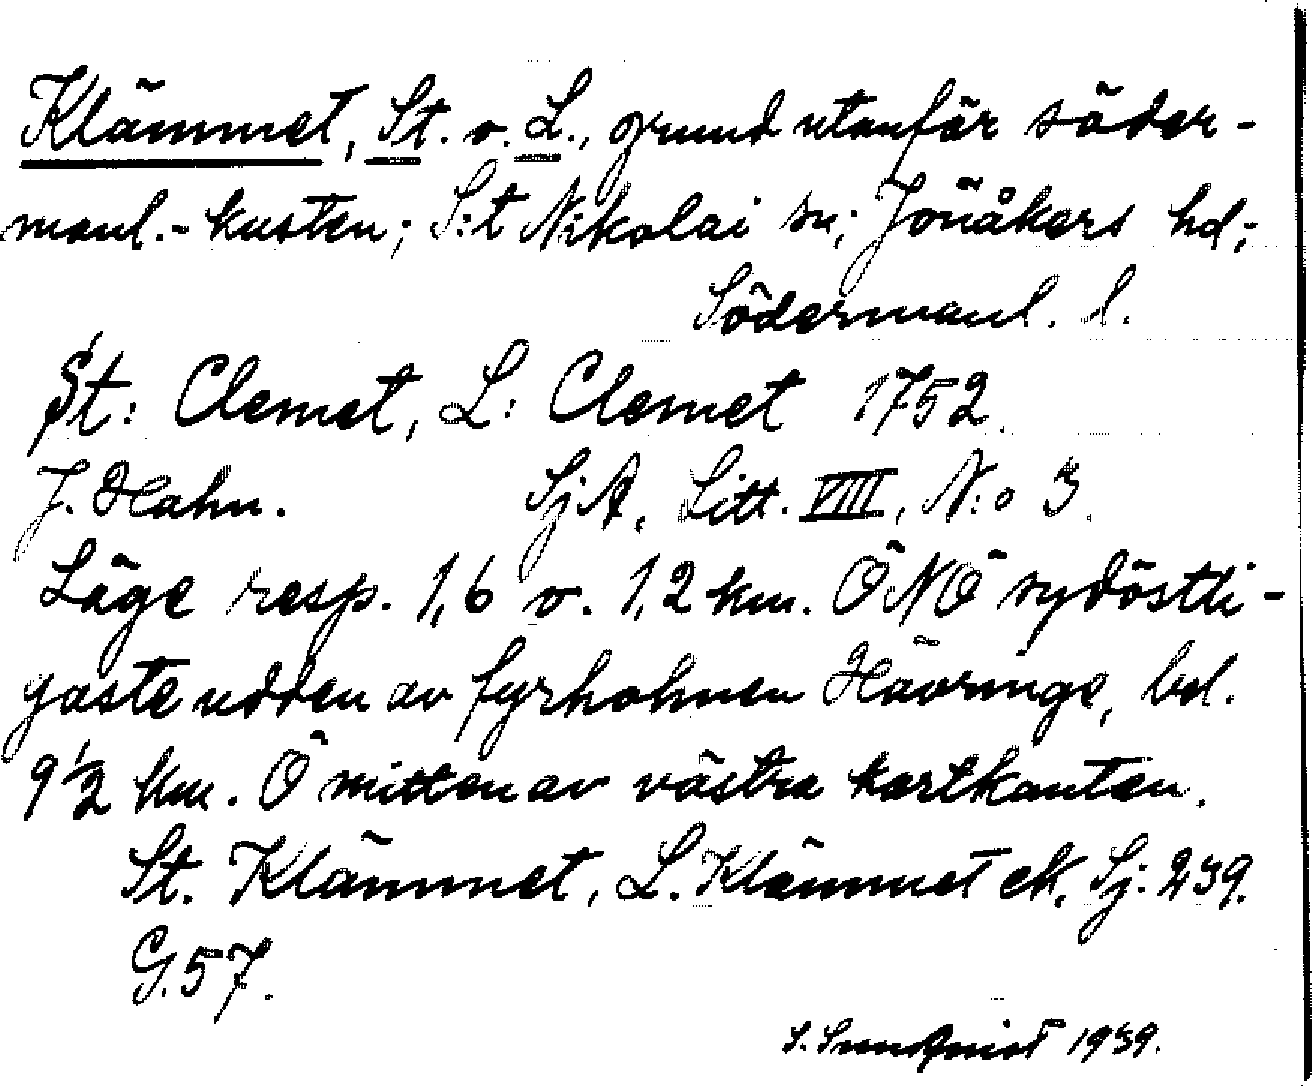 Klämmet, St. o. L., grund utanför söder-
manl.-kusten; S:t Nikolai sn; Jönåkers hd;
Södermanl. l.
St: Clemet, L: Clemet 1752.
J. Hahn. SjA, Litt. VIII, N:o 3.
Läge resp. 1,6 o. 1,2 km. ÖNÖ sydöstli-
gaste udden av fyrholmen Hävringe, bel.
9 1/2 km. Ö mitten av västra kartkanten.
St. Klämmet, L. Klämmet ek. Sj: 239.
G.57.
S. Sundqvist 1939.